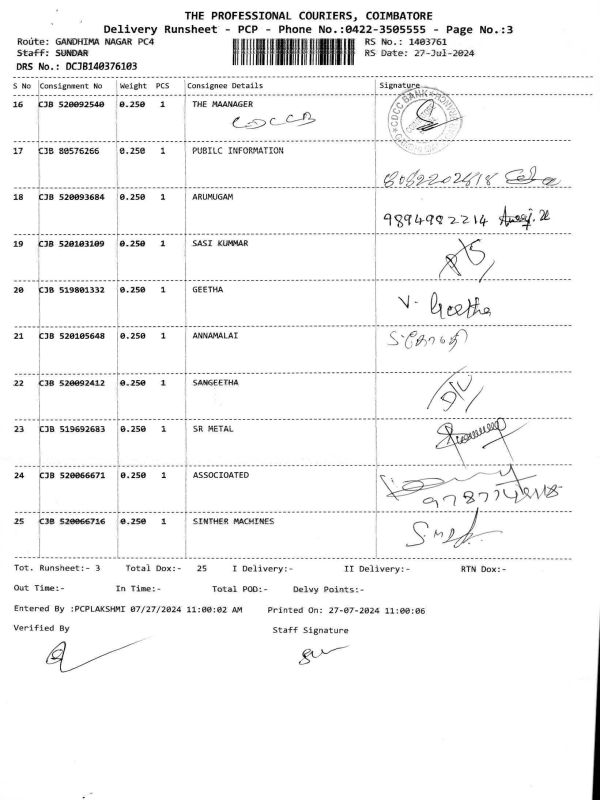 THE PROFESSIONAL COURIERS, COIMBATORE
Delivery Runsheet - PCP - Phone No.:0422-3505555 - Page No.:3
Route: GANDHIMA NAGAR PC4 RS No.: 1403761
Staff: SUNDAR RS Date: 27-Jul-2024
DRS No.: DCJB140376103
S No Consignment No Weight PCS Consignee Details Signature
16 CJB 520092540 0.250 1 THE MAANAGER
CDCCB
17 CJB 80576266 0.250 1 PUBILC INFORMATION
18 CJB 520093684 0.250 1 ARUMUGAM
9894982214
19 CJB 520103109 0.250 1 SASI KUMMAR
20 CJB 519801332 0.250 1 GEETHA
V. Geetha
21 CJB 520105648 0.250 1 ANNAMALAI
22 CJB 520092412 0.250 1 SANGEETHA
23 CJB 519692683 0.250 1 SR METAL
24 CJB 520066671 0.250 1 ASSOCIOATED
25 CJB 520066716 0.250 1 SINTHER MACHINES
Tot. Runsheet:- 3 Total Dox:- 25 I Delivery:- II Delivery:- RTN Dox:-
Out Time:- In Time:- Total POD:- Delvy Points:-
Entered By :PCPLAKSHMI 07/27/2024 11:00:02 AM Printed On: 27-07-2024 11:00:06
Verified By Staff Signature